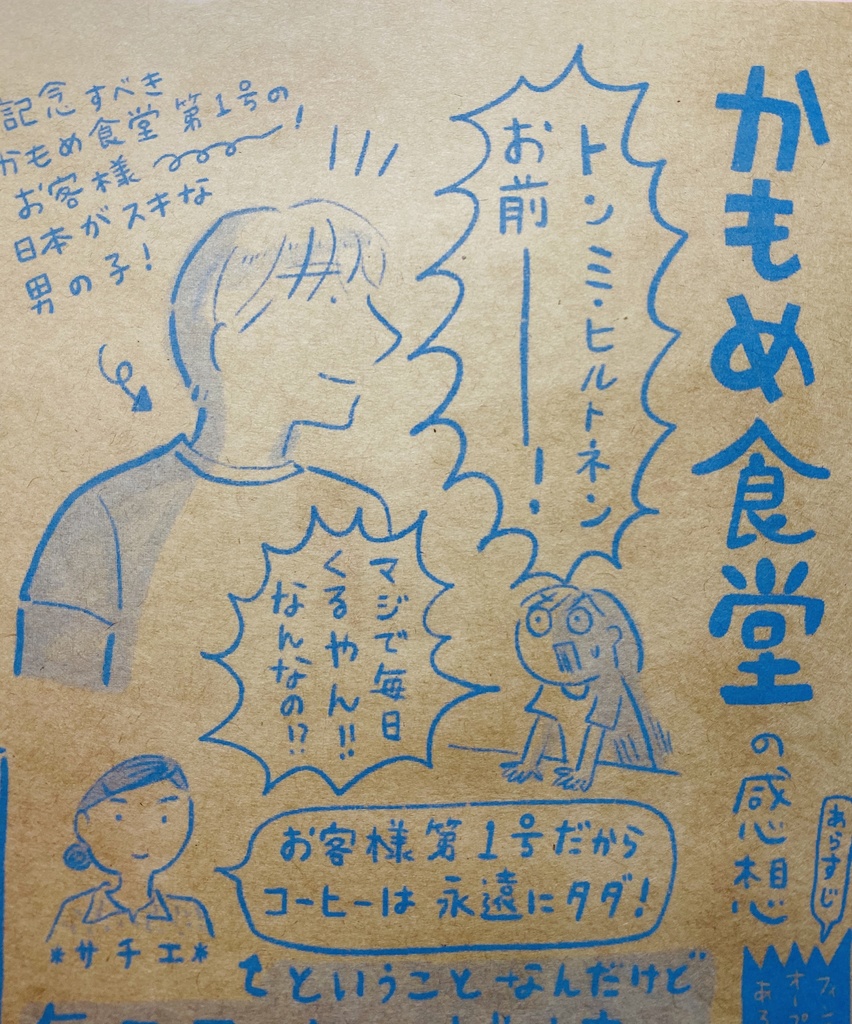 かもめ食堂の感想
あらすじ
トンミ・ヒルトネン
お前――!
記念すべき
かもめ食堂第1号の
お客様!
日本がスキな
男の子!
マジで毎日
くるやん!!
なんなの!?
お客様第1号だから
コーヒーは永遠にタダ!
*サチエ*
ということなんだけど